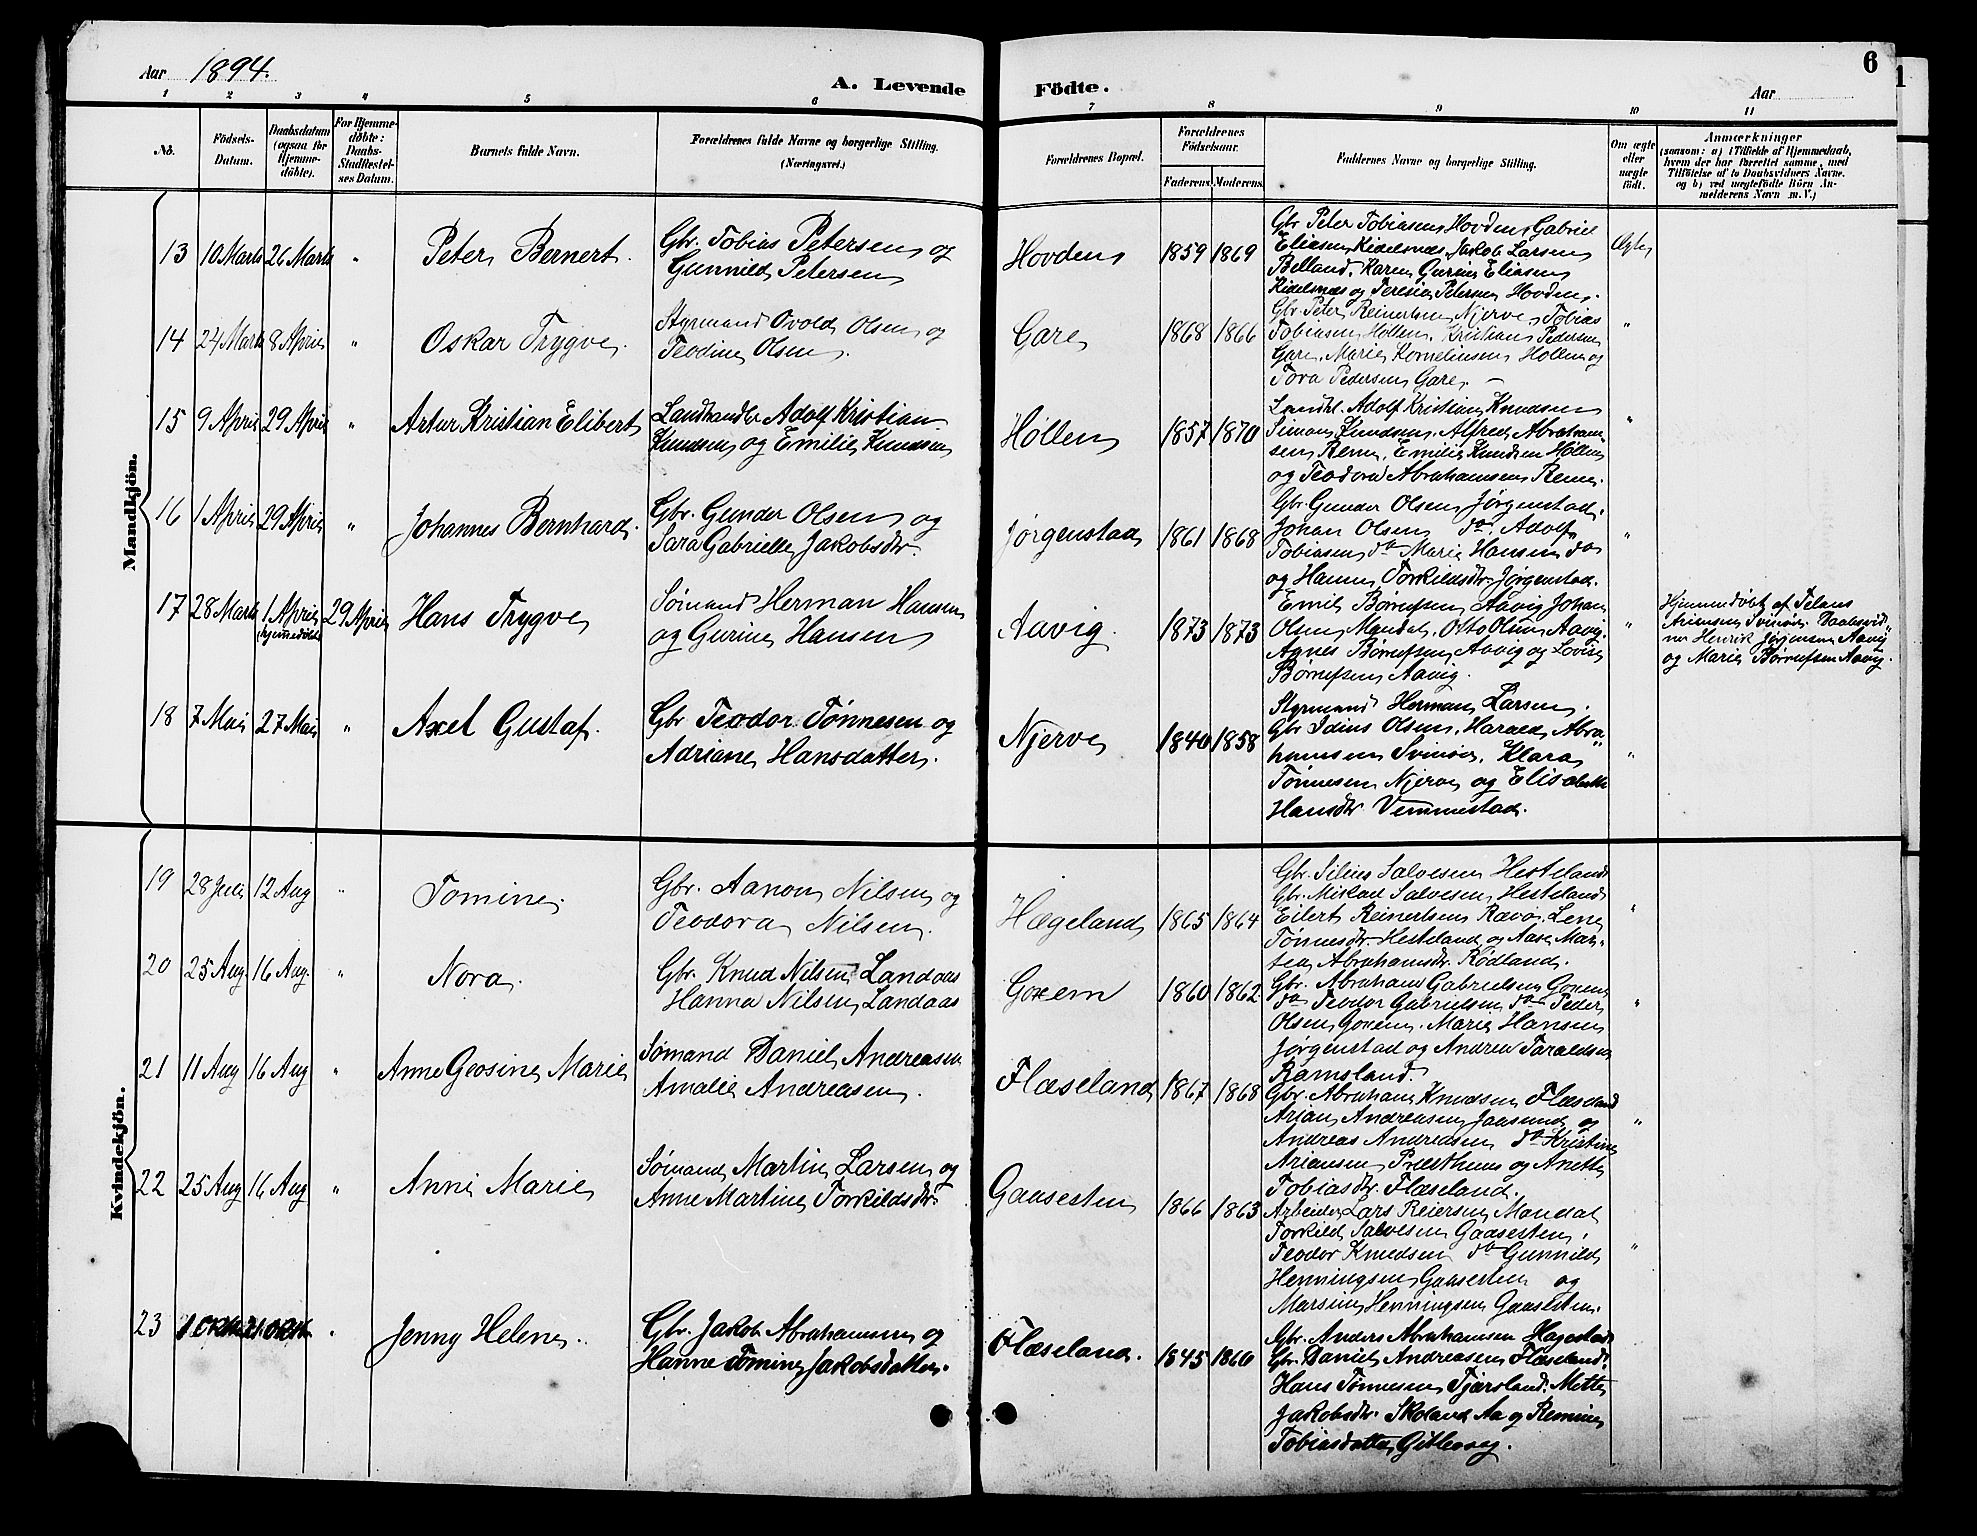 Aar 1894.
A. Levende
Födte.
6
Aar
1 2 3 4 5 6 7 8 9 10 11
No.
Födsels-
Datum.
Daabsdatum
(ogsaa for
Hjemme-
döbte).
For Hjemme-
döbte:
Daabs-
Stadfæstel-
ses Datum.
Barnets fulde Navn.
Forældrenes fulde Navne og borgerlige Stilling.
(Næringsvei.)
Forældrenes Bopæl.
Forældrenes
Födselsaar.
Faderens. Moderens.
Faddernes Navne og borgerlige Stilling.
Om ægte
eller
uægte
födt.
Anmærkninger
(saasom: a) i Tilfælde af Hjemmedaab,
hvem der har forrettet samme, med
Tilföielse af to Daabsvidners Navne.
og b) ved uægtefödte Börn An-
melderens Navn m. V.)
Mandkjön.
13 10 Marts 26 Marts " Peter Bernert.
Gbr. Tobias Petersen og
Gunnild Petersen
Hovden 1859 1869
Gbr Peter Tobiasen Hovden Gabriel
Eliasen Kidelsnæs, Jakob Larsen
Belland. Karen Gurine Eliasen
Kidelsnæs og Teresia Petersen Hovden.
Ægte
14 24 Marts 8 April " Oskar Trygve.
Styrmand Ovold Olsen og
Teodine Olsen.
Gare 1868 1866
Gbr. Peter Reinertsen Njerve, Tobias
Tobiasen Høllen. Kristian Pedersen
Gare. Marie Korneliusen Hollen og
Tora Pedersen Gare. —
"
15 9 April 29 April " Artur Kristian Elibert
Landhandler Adolf Kristian
Knudsen og Emilie Knudsen
Høllen 1857 1870
Landhl. Adolf Kristian Knudsen
Simon Knudsen. Alfred Abraham-
sen Reme, Emilie Knudsen Høllen
og Teodora Abrahamsen Reme.
"
16 1 April 29 April " Johannes Bernhard.
Gbr. Gunder Olsen og
Sara Gabrielle Jakobsdtr.
Jørgenstad 1861 1868
Gbr. Gunder Olsen Jørgenstad.
Johan Olsen do. Adolf
Tobiasen do Marie Hansen do
og Hanne Torkildsdtr. Jørgenstad.
"
17 28 Marts 1 April (hjemmedöbt) 29 April Hans Trygve
Sømand Herman Hansen
og Gurine Hansen
Aavig. 1873 1873
Emil Børresen Aavig Johan
Olsen Mandal. Otto Olsen Aavig.
Agnes Børresen Aavig og Lovise
Børresen Aavig.
"
Hjemmedøbt af Telans
Ariansen Svinør. Daabsvid-
ner Henrik Jørgensen Aavig
og Marie Børresen Aavig.
18 7 Mai 27 Mai " Axel Gustaf.
Gbr Teodor Tönnesen og
Adriane Hansdatter.
Njerve 1840 1858
Styrmand Herman Larsen.
Gbr Idius Olsen. Harald Abra-
hamsen Svinör. Klara
Tönnesen Njerve og Elisabeth
Hansdtr Vemmestad.
"
Kvindekjön.
19 28 Juli 12 Aug " Tomine.
Gbr. Aanon Nilsen og
Teodora Nilsen.
Hægeland 1865 1864
Gbr. Silius Salvesen Hesteland
Gbr. Mikael Salvesen Hesteland
Eilert Reinertsen Ravø. Lene
Tønnesdtr. Hesteland og Aase Mar-
tea Abrahamsdtr. Rödland.
"
20 25 Aug 16 Aug. " Nora.
Gbr. Knud Nilsen Landaas
Hanna Nilsen Landaas
Goxem 1860 1862
Gbr. Abraham Gabrielsen Goxem
do Teodor Gabrielsen do Peder
Olsen Goxem. Marie Hansen
Jørgenstad og Andrea Taraldsen
Ramsland.
"
21 11 Aug 16 Aug " Anne Geosine Marie
Sømand Daniel Andreasen
Amalie Andreasen.
Flæseland 1867 1868
Gbr. Abraham Knudsen Flæseland
Arian Andreasen Jaasund og
Andreas Andreasen do Kristine
Ariansen Præsthus og Anette
Tobiasdtr. Flæseland.
"
22 25 Aug 16 Aug " Anne Marie
Sømand Martin Larsen og
Anne Martine Torkildsdtr.
Gaasesten 1866 1863
Arbeider Lars Reiersen Mandal
Torkild Salvesen Gaasesten.
Teodor Knudsen do Gunnild
Henningsen Gaasesten og
Marsine Henningsen Gaasesten.
"
23 1 Oktbr 21 Oktbr " Jenny Helene.
Gbr. Jakob Abrahamsen og
Hanne Tomine Jakobsdatter.
Flæseland. 1845 1860
Gbr. Anders Abrahamsen Hagestad
Gbr. Daniel Andreasen Flæseland.
Hans Tønnesen Tjørsland. Mette
Jakobsdtr. Skoland Aa og Remine
Tobiasdatter Gitlevaag.